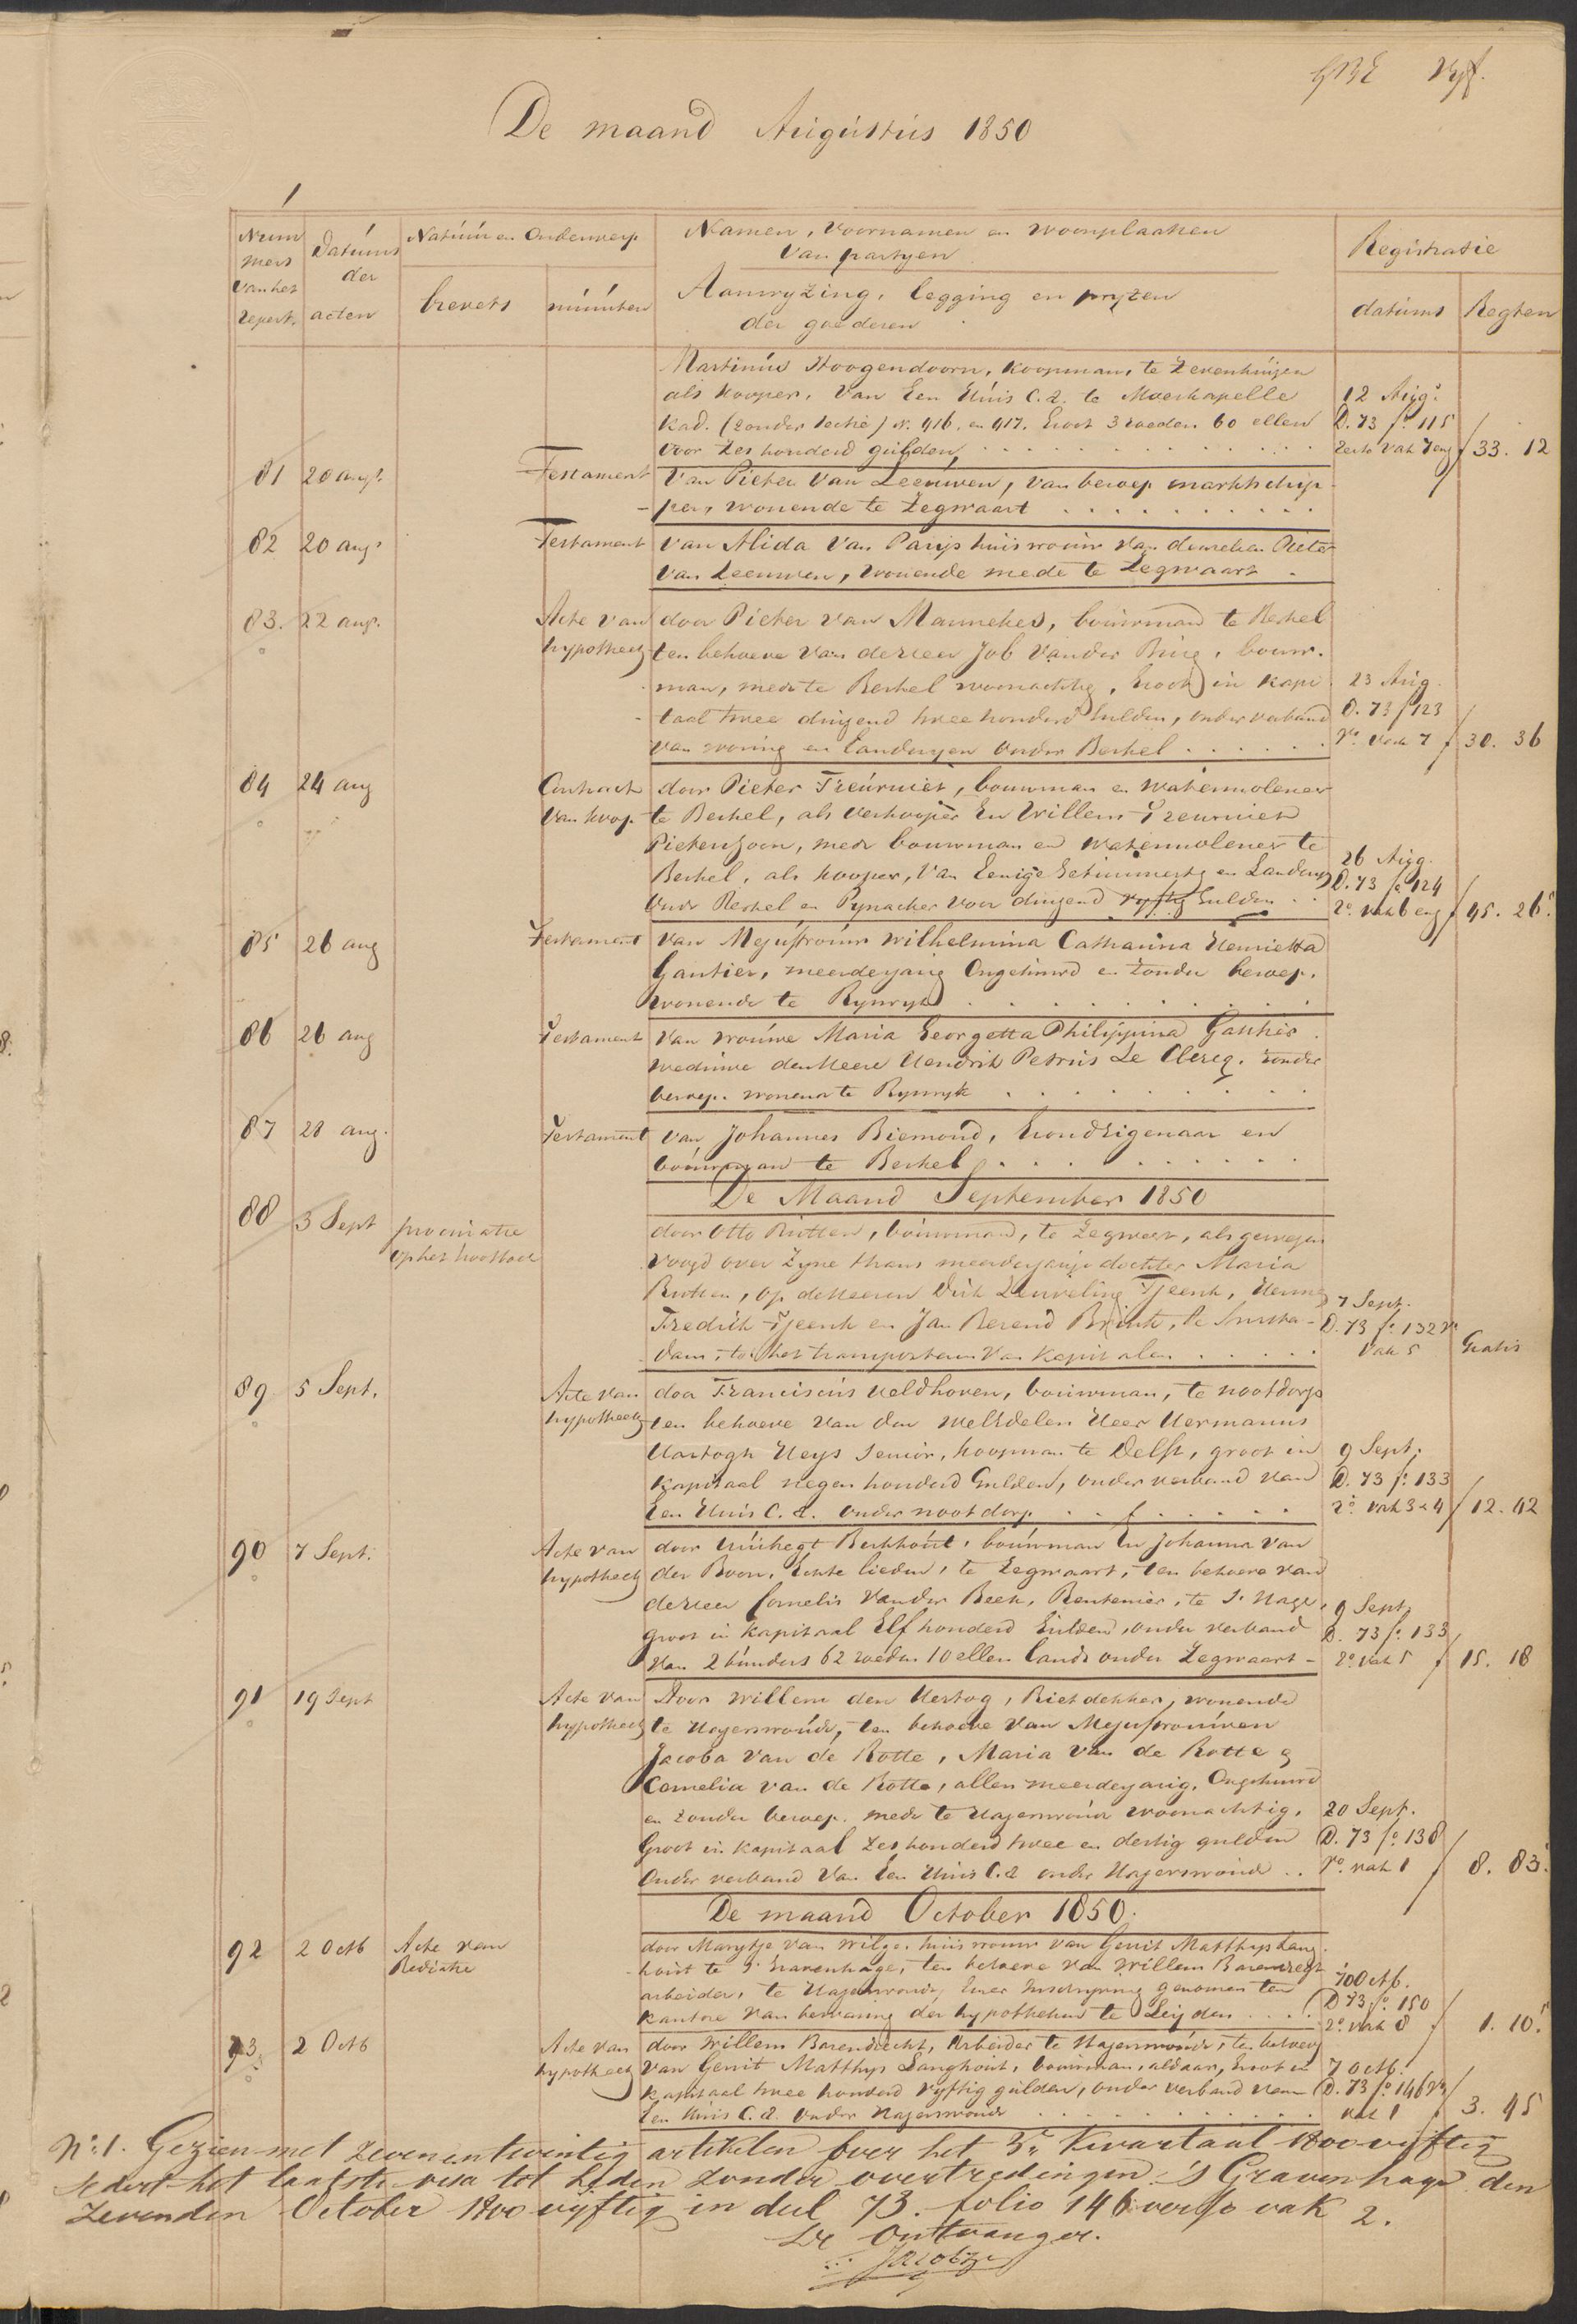 Vyf.
De maand Augústús 1850
1
Num
mers
van het
repert.
Datúms
der
acten
Natúúr en Onderwerp
brevets
minúten
Namen, Voornamen en Woonplaatsen
Van partyen
Aanwyzing, legging en pryzen
der goederen
Registratie
datúms
Regten
Martinús Hoogendoorn, koopman, te Zevenhúizen
als kooper, Van Een Húis C.a. te Moerkapelle
Kad. (zonder sectie) N. 416. en 417. Groot 3 roeden 60 ellen
Voor Zes honderd gúlden,
12 Aúg.
D. 73 fo. 115
recto vak 7 en f 33. 12
81 20 aug. Testament Van Pieter Van Leeúwen, Van beroep marktschip-
per, wonende te Zegwaart
82 20 aug. Testament Van Alida Van Parijs huisvrouw van denzelven Pieter
Van Leeuwen, wonende mede te Zegwaart
83. 22 aug. Acte van door Pieter Van Mannekes, bouwman te Berkel
hypotheek ten behoeve Van de Heer Job Vander Búrg, bouw-
man, mede te Berkel woonachtig, Groot in kapi-
taal twee duizend twee honderd Gulden, onder verband
Van woning en Landeryen Onder Berkel
23 Aug.
D. 73 f 123
ro. vak 7 f 30. 36
84 24 aug Contract door Pieter Treúrniet, bouwman en Watermolenaar
Van koop te Berkel, als Verkooper En Willem Treurniet
Pieterszoon, mede bouwman en Watermolenaar te
Berkel, als kooper, Van Eenige Getimmerte en Landery
Onder Berkel en Pynacker Voor duizend vyftig Gulden
26 Aug.
D. 73 fo. 124
ro. vak 6 en f 45. 26.5
85 26 aug Testament Van Mejúfvroúw Wilhelmina Catharina Henrietta
Gautier, meerderjarig Ongehuwd en Zonder beroep,
wonende te Ryswyk
86 26 aug Testament Van Vroúwe Maria Georgetta Philippina Gautier
Weduwe den Heere Hendrik Petrús Le Clercq, zonder
beroep. wonende te Ryswyk
87 28 aug. Testament Van Johannes Biemond, Grondeigenaar en
boúwman te Berkel
De Maand September 1850
88 3 Sept procúratie door Otto Rútten, boúwman, te Zegwaart, als gewezen
op het hoofd Voogd over Zyne thans meerderjarige dochter Maria
Rutten, op de Heeren Dirk Leuveling Tjeenk, Herman
Fredrik Tjeenk en Jan Berend Brink, te Amster-
dam, tot het transporteren Van Kapitalen
7 Sept.
D. 73 fo. 132 vo
vak 5 Gratis
89 5 Sept. Acte van door Franciscús Veldhoven, boúwman, te nootdorp
hypotheek ten behoeve Van den WelEdelen Heer Hermanus
Hartogh Heys Senior, koopman te Delft, groot in
kapitaal negen honderd Gulden, onder verband van
Een Huis C.a. onder nootdorp
9 Sept.
D. 73 fo. 133
ro. vak 3 4 f 12. 42
90 7 Sept. Acte van door Húibregt Berkhoút, boúwman En Johanna Van
hypotheek der Boon, Echte lieden, te Zegwaart, ten behoeve van
de Heer Cornelis Vander Beek, Rentenier, te s' Hage,
groot in kapitaal Elf honderd Gulden, onder verband
Van 2 bunders 62 roeden 10 ellen lands onder Zegwaart
9 Sept.
D. 73 fo. 133
ro. vak 5 f 15. 18
91 19 Sept Acte van door Willem den Hertog, Rietdekker, wonende
hypotheek te Hazerswoúde, ten behoeve Van Mejufvroúwen
Jacoba Van de Rotte, Maria Van de Rotte &
Cornelia van de Rotte, allen meerderjarig, Ongehuwd
en Zonder beroep. mede te Hazerswoúde woonachtig,
Groot in kapitaal Zes honderd twee en dertig gulden
Onder verband Van Een Húis C.a onder Hazerswoúde
20 Sept.
D. 73 fo. 138
ro. vak 1 f 8. 83.5
De maand October 1850.
92 2 Octb Acte van door Marijtje Van Wilgen huisvrouw van Gerrit Matthys Lang-
Radiatie hoút te s' Gravenhage, ten behoeve Van Willem Barendregt
arbeider, te Hazerswoude, Eener Inschryving genomen ten
kantore Van bewaring der hypotheken te Leijden
D 73 fo. 150
ro. vak 8 f 1. 10.5
93. 2 Octb Acte van door Willem Barendrecht, Arbeider te Hazerswoúde, te behoeve
hypotheek Van Gerrit Matthys Langhout, boúwman, aldaar, Groot in
kapitaal twee honderd Vyftig gulden, onder verband van
Een Húis C.a. Onder Hazerswoude
7 Octb.
D. 73 fo. 146 vo
vak 1 f 3. 45
No. 1. Gezien met zevenentwintig artikelen over het 3e. Kwartaal 1800 vyftig
sedert het laatste visa tot heden zonder overtredingen. 's Gravenhage den
Zevenden October 1800 vyftig in deel 73. folio 146 verso vak 2.
De Ontvanger.